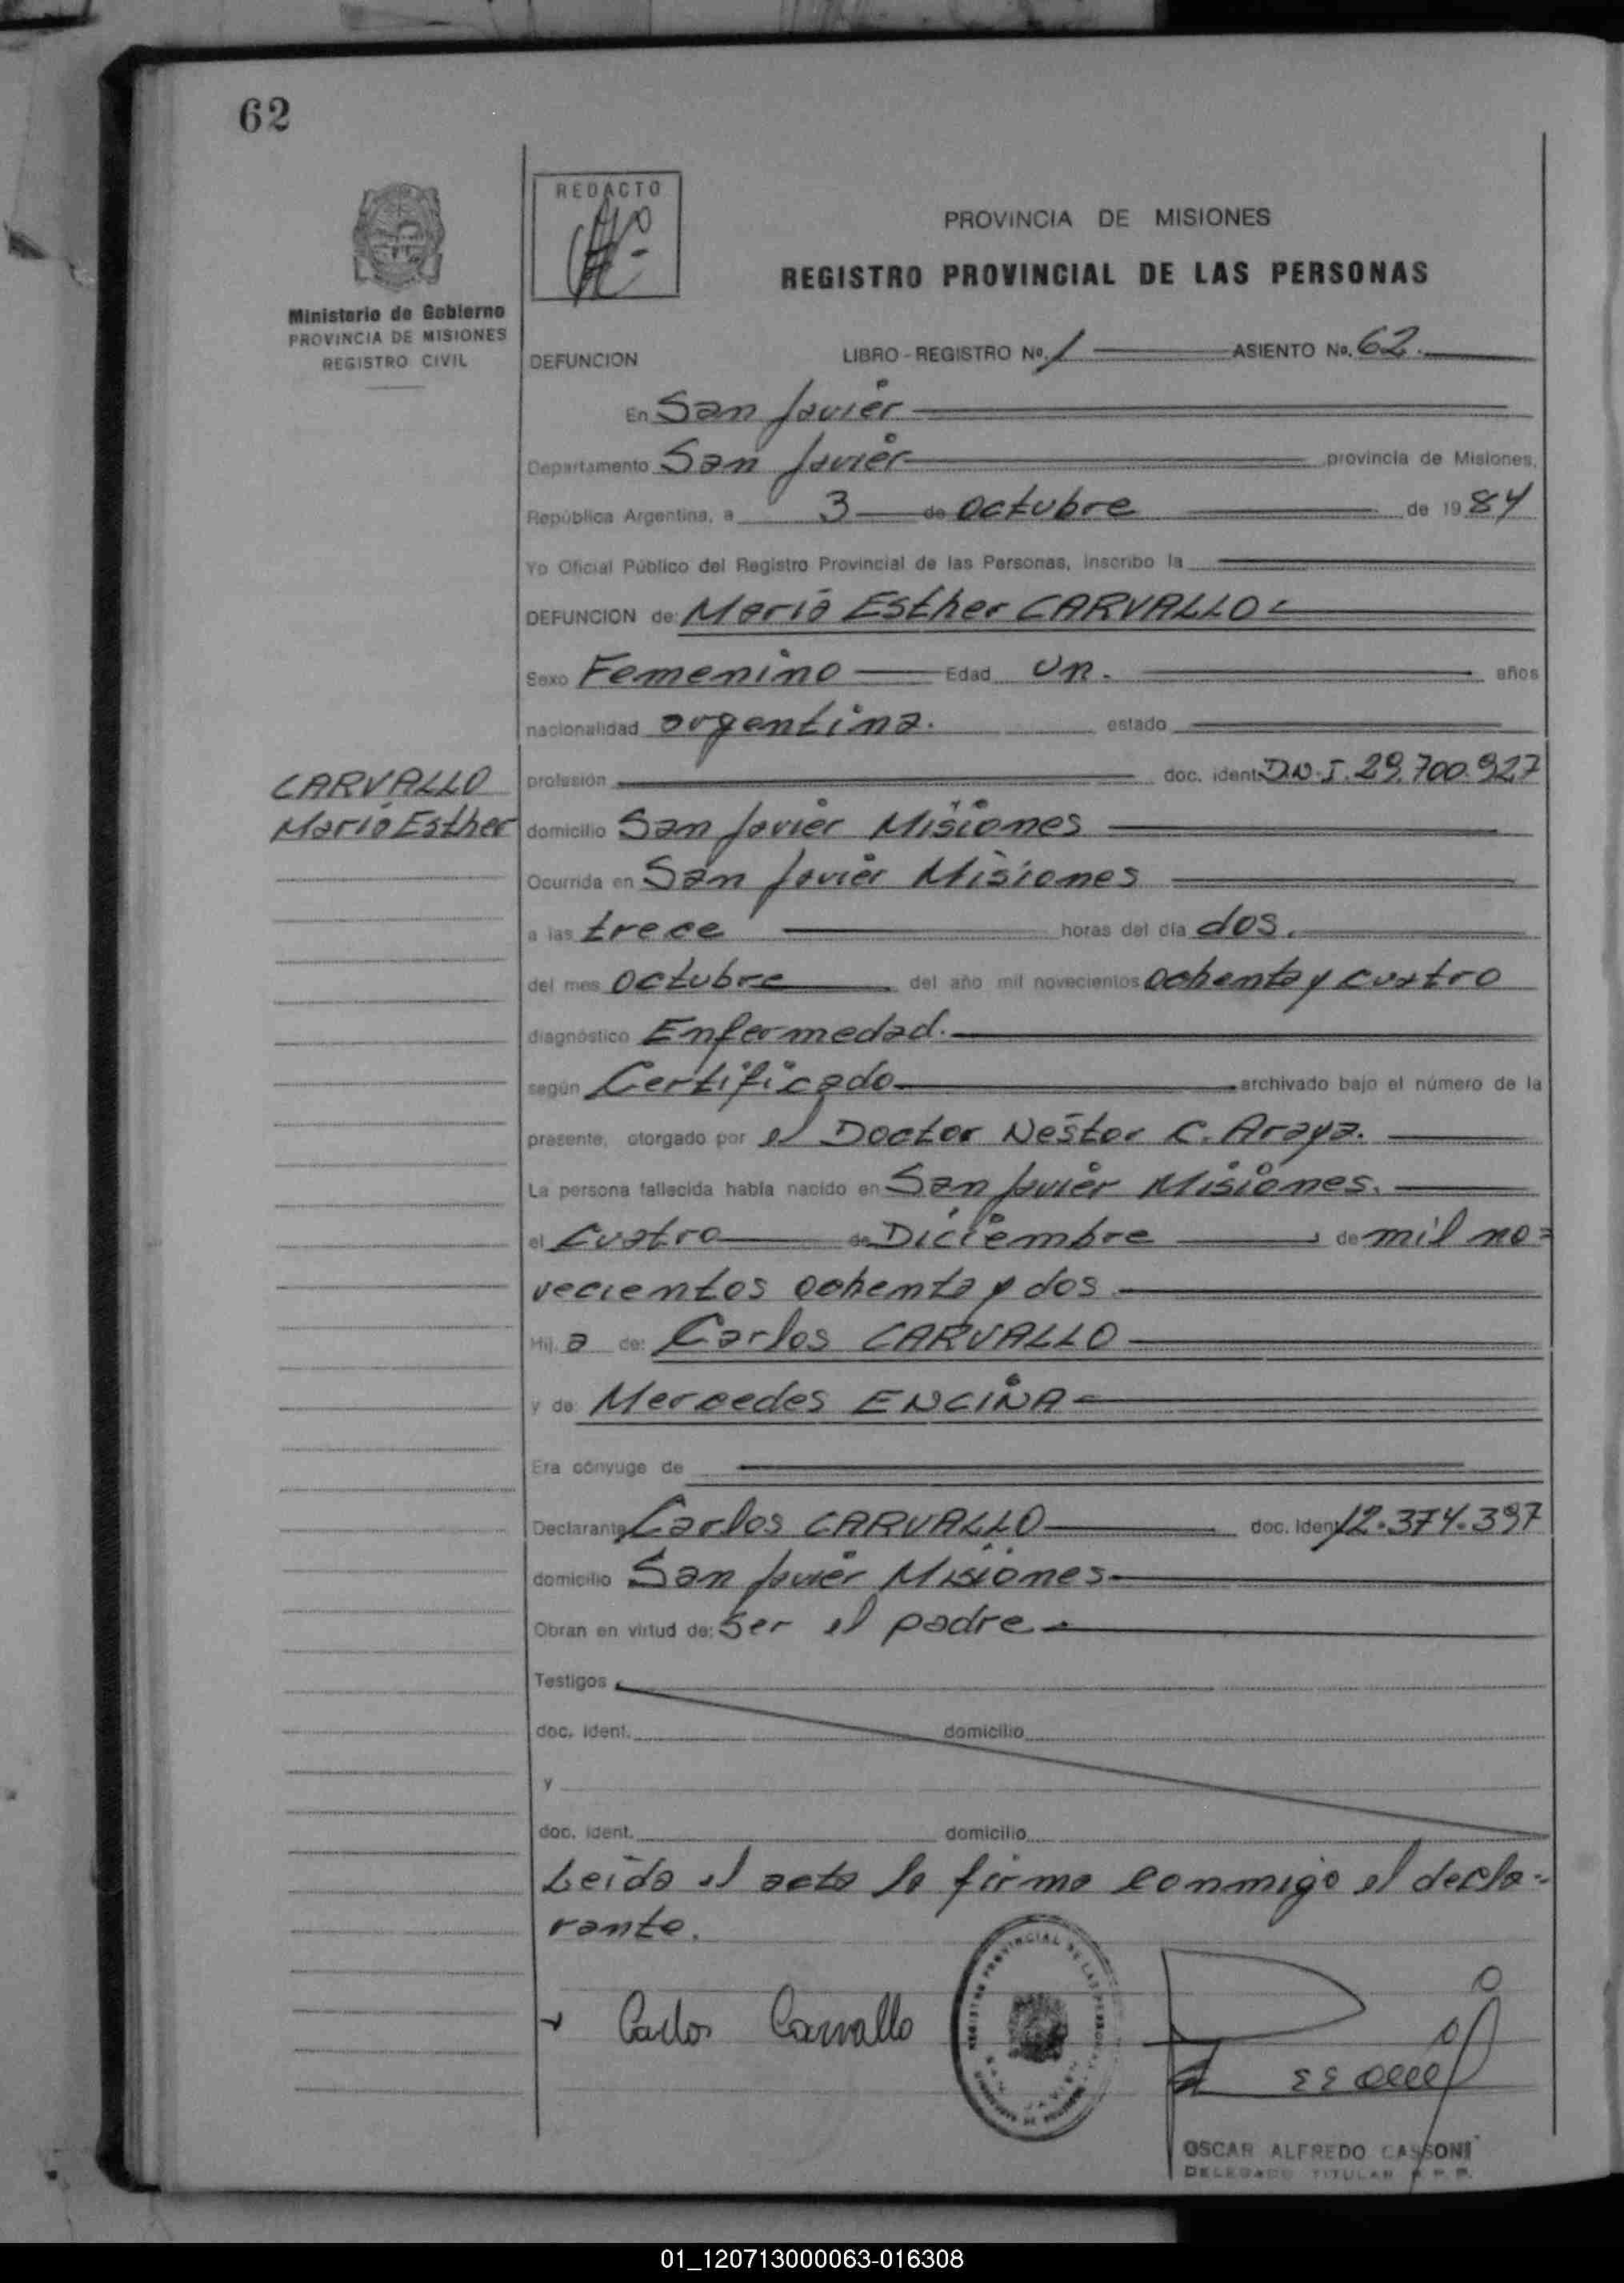 62
REDACTO
PROVINCIA DE MISIONES
REGISTRO PROVINCIAL DE LAS PERSONAS
Ministerio de Gobierno
PROVINCIA DE MISIONES
REGISTRO CIVIL
DEFUNCION LIBRO - REGISTRO No. 1 ASIENTO No. 62.
En San Javier
Departamento San Javier provincia de Misiones,
República Argentina, a 3 de octubre de 1984
Yo Oficial Público del Registro Provincial de las Personas, inscribo la
DEFUNCION de: María Esther CARVALLO
Sexo Femenino Edad Un. años
nacionalidad argentina. estado
profesión doc. ident. D.N.I. 29.700.927
CARVALLO
María Esther
domicilio San Javier Misiones
Ocurrida en San Javier Misiones
a las trece horas del día dos.
del mes octubre del año mil novecientos ochenta y cuatro
diagnóstico Enfermedad.
según Certificado archivado bajo el número de la
presente, otorgado por el Doctor Nestor C. Araya.
La persona fallecida había nacido en San Javier Misiones.
el cuatro de Diciembre de mil no=
vecientos ochenta y dos
Hij a de: Carlos CARVALLO
y de Mercedes ENCINA
Era cónyuge de
Declarante Carlos CARVALLO doc. ident. 12.374.397
domicilio San Javier Misiones
Obran en virtud de: Ser el padre
Testigos
doc. ident. domicilio
y
doc. ident. domicilio
Leída el acta la firma conmigo el decla=
rante.
Carlos Carvallo
REGISTRO PROVINCIAL DE LAS PERSONAS
OSCAR ALFREDO CASSONI
DELEGADO TITULAR R. P. P.
01_120713000063-016308